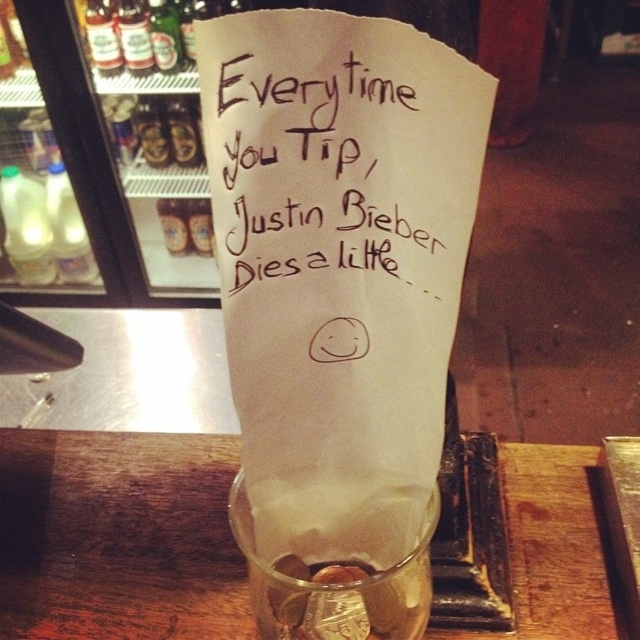 Everytime
You Tip,
Justin Bieber
Dies a little....